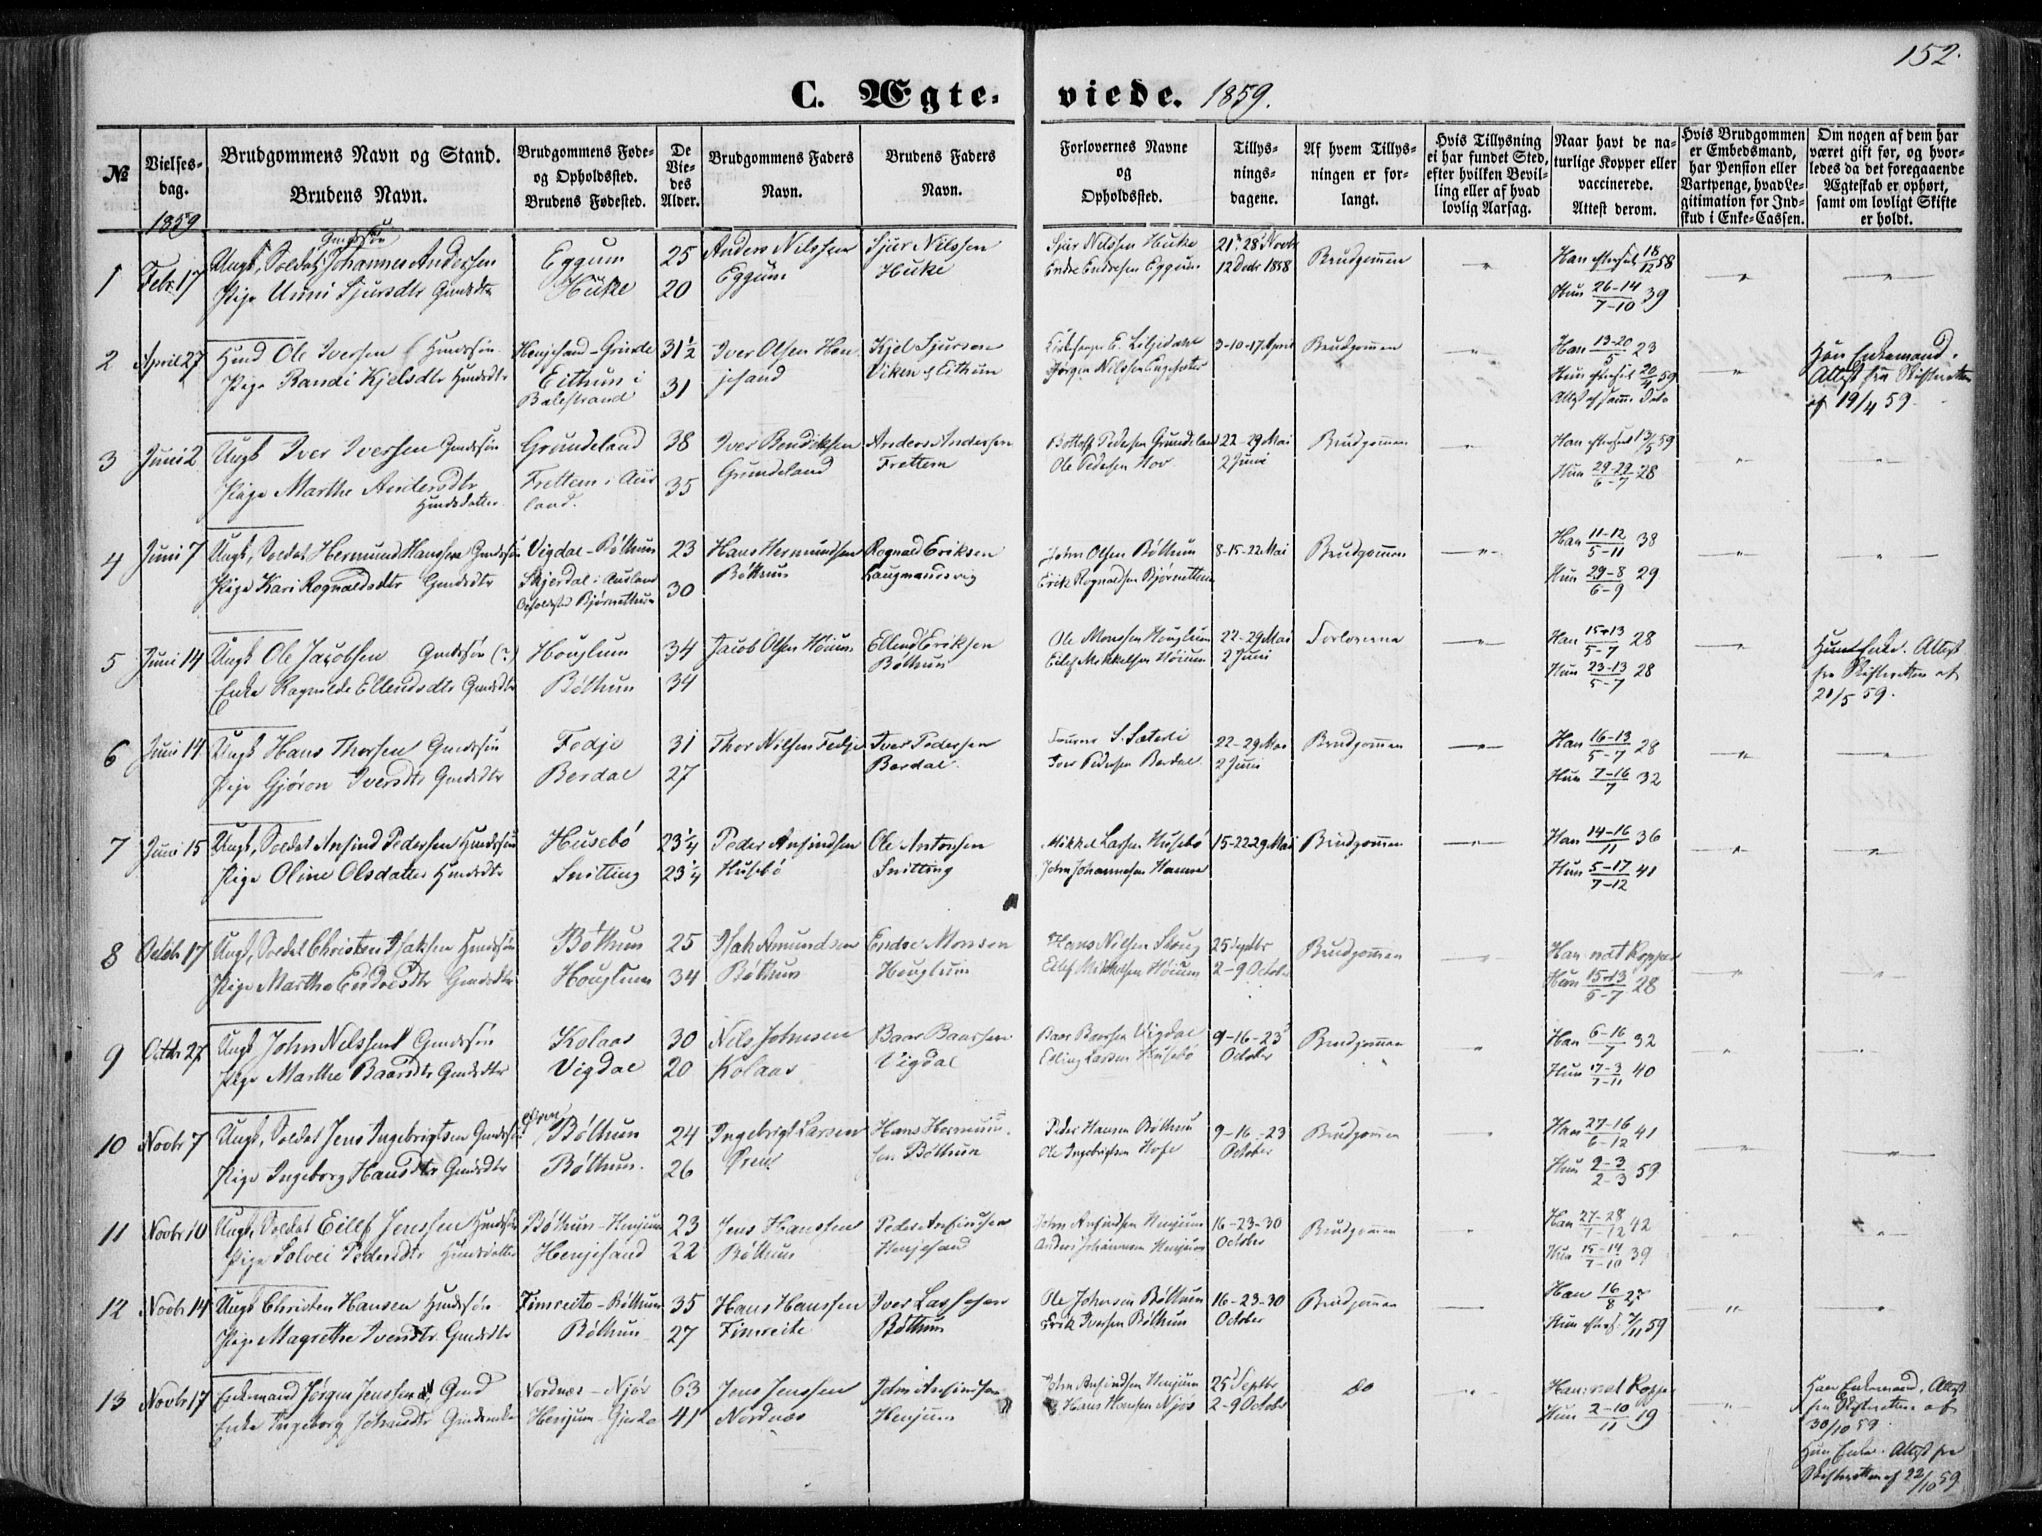 152.
C. Ægte- viede. 1859.
№
Vielses-
dag.
1859
Brudgommens Navn og Stand.
Brudens Navn.
Brudgommens Føde-
og Opholdssted.
Brudens Fødested.
De
Vie-
des
Alder.
Brudgommens Faders
Navn.
Brudens Faders
Navn.
Forlovernes Navne
og
Opholdssted.
Tillys-
nings-
dagene.
Af hvem Tillys-
ningen er for-
langt.
Hvis Tillysning
ei har fundet Sted,
efter hvilken Bevil-
ling eller af hvad
lovlig Aarsag.
Naar havt de na-
turlige Kopper eller
vaccinerede.
Attest derom.
Hvis Brudgommen
er Embedsmand,
har Pension eller
Vartpenge, hvad Le-
gitimation for Ind-
skud i Enke-Cassen.
Om nogen af dem har
været gift før, og hvor-
ledes da det foregaaende
Ægteskab er ophørt,
samt om lovligt Skifte
er holdt.
1 Febr. 17 Ungk, Soldat Johannes Andersen Eggum 25 Anders Nilssen Sjur Nilssen Sjur Nilssen Huke 21, 28 Novbr Brudgommen Han 18/12 58
Pige Unni Sjursdtr Gmdsdtr Huke 20 Eggum Huke Endre Endresen Eggum 12 Decbr 1858 Hun 26-14/7-10 39
2 April 27 Hmd Ole Iversen Husmdsøn Henjesand - Grinde 31½ Iver Olsen Hen- Kjel Sjursen 3-10-17 April Brudgommen Han 13-20/5 23 Han Enkemand.
Pige Randi Kjelsdtr Husmdsdtr Eithun i 31 jesand Viken af Eithun Hun 20/4 59 Attest fra Skifteretten
Balestrand af 19/4 59.
3 Juni 2 Ungk Iver Iversen Gmdssøn Grundeland 38 Iver Bendiksen Anders Andersen Pedersen Grundeland 22-29 Mai Brudgommen Han 13/5 59
Pige Marthe Andersdtr Frettem i Aur- 35 Grundeland Frettem Ole Pedersen Hov 2 Juni Hun 29-22/6-7 28
Husmdsdatter land.
4 Juni 7 Ungk, Soldat Hermund Hanssen Gmdssøn Vigdal - Bøthun 23 Hans Hermundsen Rognald Eriksen John Olsen Bøthun 8-15-22 Mai Brudgommen Han 11-12/5-11 38
Pige Kari Rognaldsdtr Gmdsdtr Skjerdal i Aurland 30 Bøthun Erik Rognaldsen Bjørnetthun Hun 29-8/6-9 29
Opholdssted Bjørnetthun
5 Juni 14 Ungk Ole Jacobsen Gmdssøn (?) Houglum 34 Jacob Olsen Høium Ellend Eriksen Ole Monssen Houglum 22-29 Mai Forloverne Han 15-13/5-7 28 Hun Enke. Attest
Enke Ragnilde Ellendsdtr Gmdsdtr Bøthun 34 Bøthun Eilef Mikkelsen Høium 2 Juni Hun 23-13/5-7 28 fra Skifteretten af
21/5 59.
6 Juni 14 Ungk Hans Thorsen Gmdssøn Fedje 31 Thor Nilsen Fedje Iver Pedersen S. Sæterli 22-29 Mai Brudgommen Han 16-13/5-7 28
Pige Gjøron Iversdtr Gmdsdtr Berdal 27 Berdal. Iver Pedersen Berdal 2 Juni Hun 7-16/7 32
7 Juni 15 Ungk, Soldat Ansind Pedersen Husmdsøn Husebø 23¼ Peder Ansindsen Ole Antonsen Mikkel Larsen Husebø 15-22-29 Mai Brudgommen Han 14-16/11 36
Pige Oline Olsdatter Husmdsdtr Snitting 23¼ Husebø Snitting John Johannesen Hamre Hun 5-17/7-12 41
8 Octobr 17 Ungk, Soldat Christen Isaksen Husmdsøn Bøthun 25 Isak Amundsen Endre Monsen Hans Nilsen Skoug 25 Septbr Brudgommen Han nat Kopper
Pige Marthe Endresdtr Gmdsdtr Houglum 34 Bøthun Houglum Eilef Mikkelsen Høium 2-9 October Hun 15-13/5-7 28
9 Octbr 27 Ungk John Nilssen Gmdssøn Kolaas 30 Nils Johnsen Baar Baarsen Baar Baarsen Vigdal 9-16-23 Brudgommen Han 6-16/7 32
Pige Marthe Baarsdtr Gmdsdtr Vigdal 20 Kolaas Vigdal Erling Larsen Husebø October Hun 17-3/7-11 40
10 Novbr 7 Ungk, Soldat Jens Ingebrigtsen Gmdssøn Bøthun 24 Ingebrigt Larsen Hans Hermund- Peder Hansen Bøthun 9-16-23 Brudgommen Han 27-16/6-12 41
Pige Ingeborg Hansdtr Gmdsdtr Bøthun. 26 sen Bøthun Ole Ingebrigtsen Hofe October Hun 2-3/2-3 59
11 Novbr 10 Ungk, Soldat Eillef Jenssen Husmdsøn Bøthun - Henjum 23 Jens Hanssen Peder Ansindsen John Ansindsen Henjum 16-23-30 Brudgommen Han 27-28/7-12 42
Pige Solvei Pedersdtr Husmdsdatter Henjesand 22 Bøthun Henjesand Anders Johannesen Henjum October Hun 15-14/7-10 39
12 Novbr 14 Ungk Christen Hansen Husmdsøn Fimreite - Bøthun 35 Hans Hanssen Iver Lassesen Ole Johnsen Bøthun 16-23-30 Brudgommen Han 16/8 27
Pige Magrethe Iversdtr Gmdsdtr Bøthun 27 Fimreite Bøthun Erik Iversen Bøthun October Hun 59
13 Novbr 17 Enkemand Jørgen Jenssen Gmd Nordnæs - Njøs 63 Jens Jenssen John Ansindsen John Ansindsen Henjum 25 Septbr do Han nat Kopper Han Enkemand, Attest
Enke Ingeborg Johnsdtr Gmdenke Henjum - Gjerde 41 Nordnæs Henjum Hans Hansen Njøs 2-9 Octobr Hun 2-10/11 19 fra Skifteretten af
30/10 59.
Hun Enke. Attest fra
Skifteretten af 22/10 59